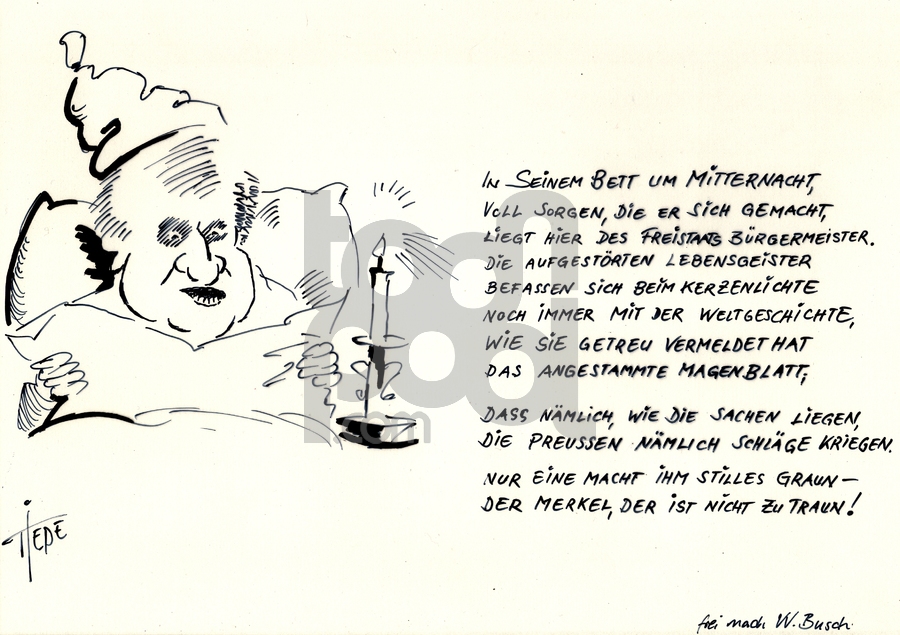 IN SEINEM BETT UM MITTERNACHT,
VOLL SORGEN, DIE ER SICH GEMACHT,
LIEGT HIER DES FREISTAATS BÜRGERMEISTER.
DIE AUFGESTÖRTEN LEBENSGEISTER
BEFASSEN SICH BEIM KERZENLICHTE
NOCH IMMER MIT DER WELTGESCHICHTE,
WIE SIE GETREU VERMELDET HAT
DAS ANGESTAMMTE MAGENBLATT,
DASS NÄMLICH, WIE DIE SACHEN LIEGEN,
DIE PREUSSEN NÄMLICH SCHLÄGE KRIEGEN.
NUR EINE MACHT IHM STILLES GRAUN –
DER MERKEL, DER IST NICHT ZU TRAUN!
TIEDE
frei nach W. Busch
toonpool
.com